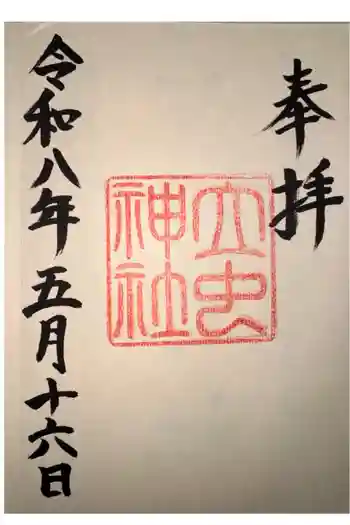 奉拝
立虫
神社
令和八年五月十六日